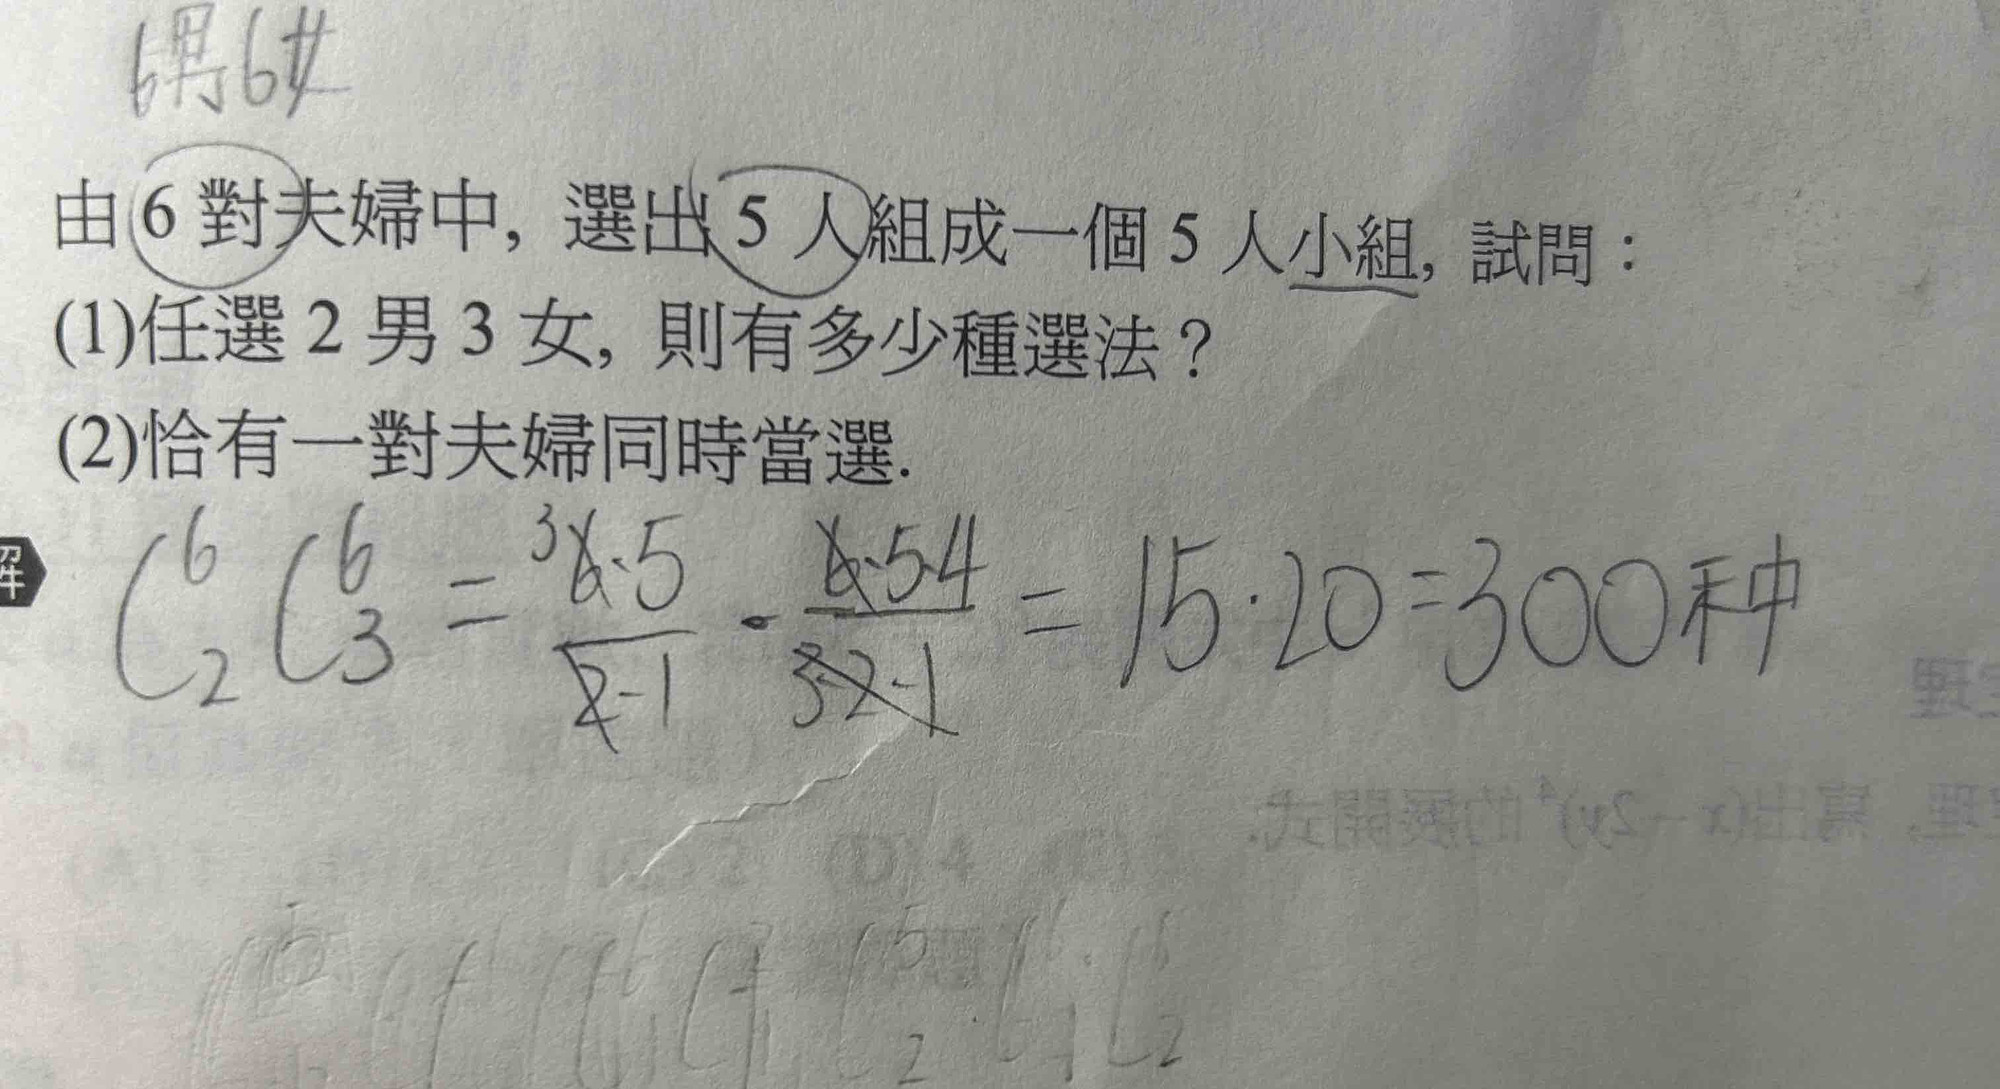 6男6女
由6對夫婦中, 選出5人組成一個5人小組, 試問：
(1)任選2男3女, 則有多少種選法？
(2)恰有一對夫婦同時當選.
解 C⁶₂ C⁶₃ = 3 6·5/2·1 · 6·5·4/3·2·1 = 15·20=300种